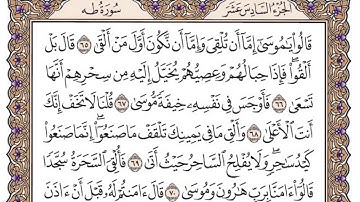 الجزء السادس عشر سورة طه
قَالُوا۟ يَـٰمُوسَىٰٓ إِمَّآ أَن تُلْقِىَ وَإِمَّآ أَن نَّكُونَ أَوَّلَ مَنْ أَلْقَىٰ ٦٥ قَالَ بَلْ
أَلْقُوا۟ ۖ فَإِذَا حِبَالُهُمْ وَعِصِيُّهُمْ يُخَيَّلُ إِلَيْهِ مِن سِحْرِهِمْ أَنَّهَا
تَسْعَىٰ ٦٦ فَأَوْجَسَ فِى نَفْسِهِۦ خِيفَةً مُّوسَىٰ ٦٧ قُلْنَا لَا تَخَفْ إِنَّكَ
أَنتَ ٱلْأَعْلَىٰ ٦٨ وَأَلْقِ مَا فِى يَمِينِكَ تَلْقَفْ مَا صَنَعُوٓا۟ ۖ إِنَّمَا صَنَعُوا۟
كَيْدُ سَـٰحِرٍ ۖ وَلَا يُفْلِحُ ٱلسَّاحِرُ حَيْثُ أَتَىٰ ٦٩ فَأُلْقِىَ ٱلسَّحَرَةُ سُجَّدًا
قَالُوٓا۟ ءَامَنَّا بِرَبِّ هَـٰرُونَ وَمُوسَىٰ ٧٠ قَالَ ءَامَنتُمْ لَهُۥ قَبْلَ أَنْ ءَاذَنَ